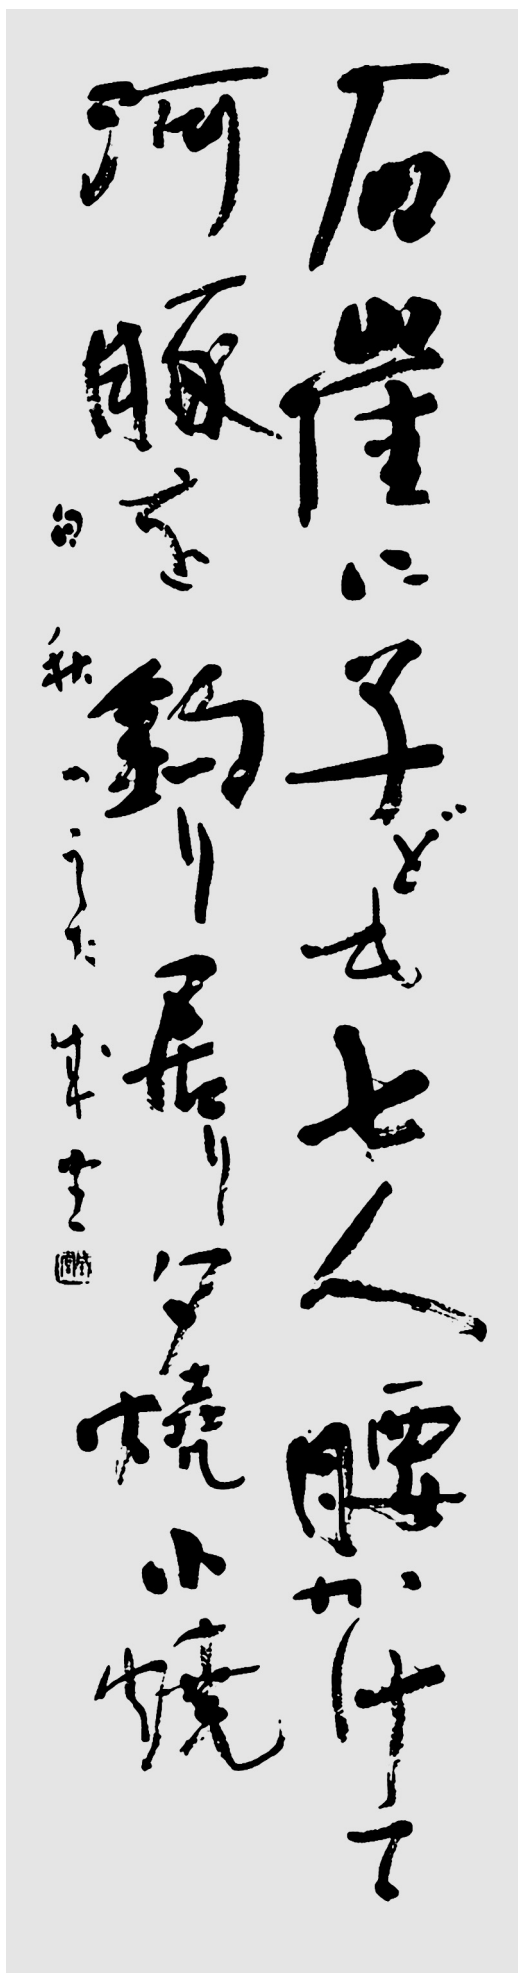 石崖に子ども七人腰かけて
河豚を釣り居り夕焼小焼
白秋のうた 成堂